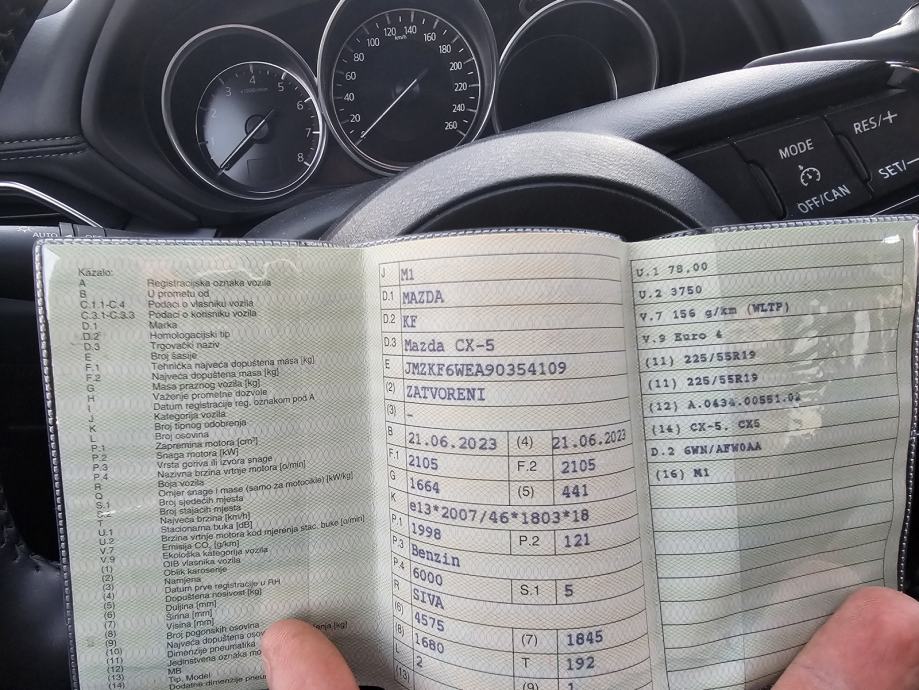 1
2
3
4
5
6
7
8
x1000r/min
20
40
60
80
100
120
140
160
180
200
220
240
260
km/h
MODE
OFF/CAN
RES/+
SET/−
AUTO
OFF
Kazalo:
A Registracijska oznaka vozila
B U prometu od
C.1.1-C.4 Podaci o vlasniku vozila
C.3.1-C.3.3 Podaci o korisniku vozila
D.1 Marka
D.2 Homologacijski tip
D.3 Trgovački naziv
E Broj šasije
F.1 Tehnička najveća dopuštena masa [kg]
F.2 Najveća dopuštena masa [kg]
G Masa praznog vozila [kg]
H Važenje prometne dozvole
I Datum registracije reg. oznakom pod A
J Kategorija vozila
K Broj tipnog odobrenja
L Broj osovina
P.1 Zapremina motora [cm³]
P.2 Snaga motora [kW]
P.3 Vrsta goriva ili izvora snage
P.4 Nazivna brzina vrtnje motora [o/min]
R Boja vozila
Q Omjer snage i mase (samo za motocikle) [kW/kg]
S.1 Broj sjedećih mjesta
S.2 Broj stajaćih mjesta
T Najveća brzina [km/h]
U.1 Stacionarna buka [dB]
U.2 Brzina vrtnje motora kod mjerenja stac. buke [o/min]
V.7 Emisija CO₂ [g/km]
V.9 Ekološka kategorija vozila
(1) OIB vlasnika vozila
(2) Oblik karoserije
(3) Namjena
(4) Datum prve registracije u RH
(5) Dopuštena nosivost [kg]
(6) Duljina [mm]
(7) Širina [mm]
(8) Visina [mm]
(9) Broj pogonskih osovina
(10) Najveća dopuštena [kg]
(11) Dimenzije pneumatika
(12) Jedinstvena oznaka
(13) MB
(14) Tip, Model
Dodatne dimenzije
J M1
D.1 MAZDA
D.2 KF
D.3 Mazda CX-5
E JMZKF6WEA90354109
(2) ZATVORENI
(3) -
B 21.06.2023 (4) 21.06.2023
F.1 2105 F.2 2105
G 1664 (5) 441
K e13*2007/46*1803*18
P.1 1998 P.2 121
P.3 Benzin
P.4 6000 S.1 5
R SIVA
(6) 4575 (7) 1845
(8) 1680 T 192
L 2 (9) 1
(13)
U.1 78,00
U.2 3750
V.7 156 g/km (WLTP)
V.9 Euro 6
(11) 225/55R19
(11) 225/55R19
(12) A.0434.00551.02
(14) CX-5, CX5
D.2 6WN/AFW0AA
(16) M1